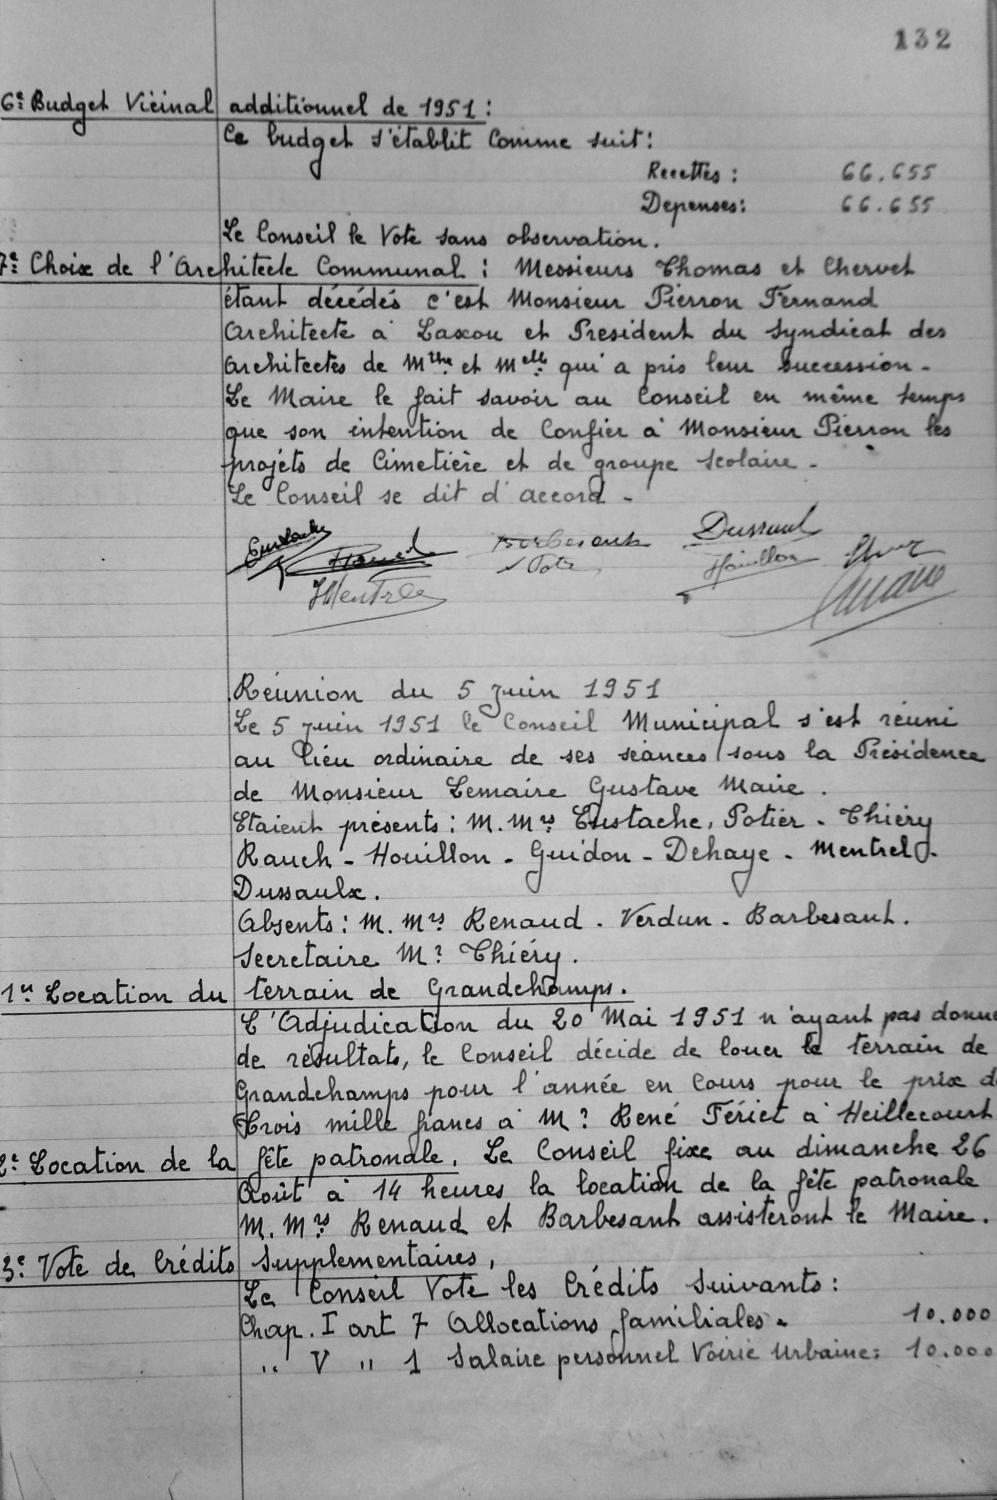 132
6e: Budget Vicinal additionnel de 1951 :
Ce budget s'établit comme suit :
Recettes : 66.655
Depenses : 66.655
Le Conseil le Vote sans observation.
7e: Choix de l'Architecte Communal : Messieurs Thomas et Chervet
étant décédés c'est Monsieur Pierron Fernand
Architecte à Laxou et President du Syndicat des
Architectes de Mthe et Melle qui a pris leur succession -
Le Maire le fait savoir au Conseil en même temps
que son intention de Confier à Monsieur Pierron les
projets de Cimetière et de groupe scolaire -
Le Conseil se dit d'accord -
Eustache Rauch Barbesant Dussaulx
Potier Houillon
JMentrel
Réunion du 5 Juin 1951
Le 5 Juin 1951 le Conseil Municipal s'est réuni
au lieu ordinaire de ses séances sous la Présidence
de Monsieur Lemaire Gustave Maire .
Etaient présents : M.Mrs Eustache, Potier - Thiéry
Rauch - Houillon - Guidon - Dehaye - Mentrel -
Dussaulx.
Absents : M.Mrs Renaud - Verdun - Barbesant.
Secretaire Mr Thiéry.
1er Location du terrain de Grandchamps.
L'Adjudication du 20 Mai 1951 n'ayant pas donné
de résultats, le Conseil décide de louer le terrain de
Grandchamps pour l'année en cours pour le prix d
Trois mille francs à Mr René Fériet à Heillecourt
2e: Location de la fête patronale. Le Conseil fixe au dimanche 26
Août à 14 heures la location de la fête patronale
M.Mrs Renaud et Barbesant assisteront le Maire.
3e: Vote de Crédits Supplementaires,
Le Conseil Vote les Crédits Suivants :
Chap. I art 7 Allocations familiales - 10.000
" V " 1 Salaire personnel Voirie Urbaine : 10.000